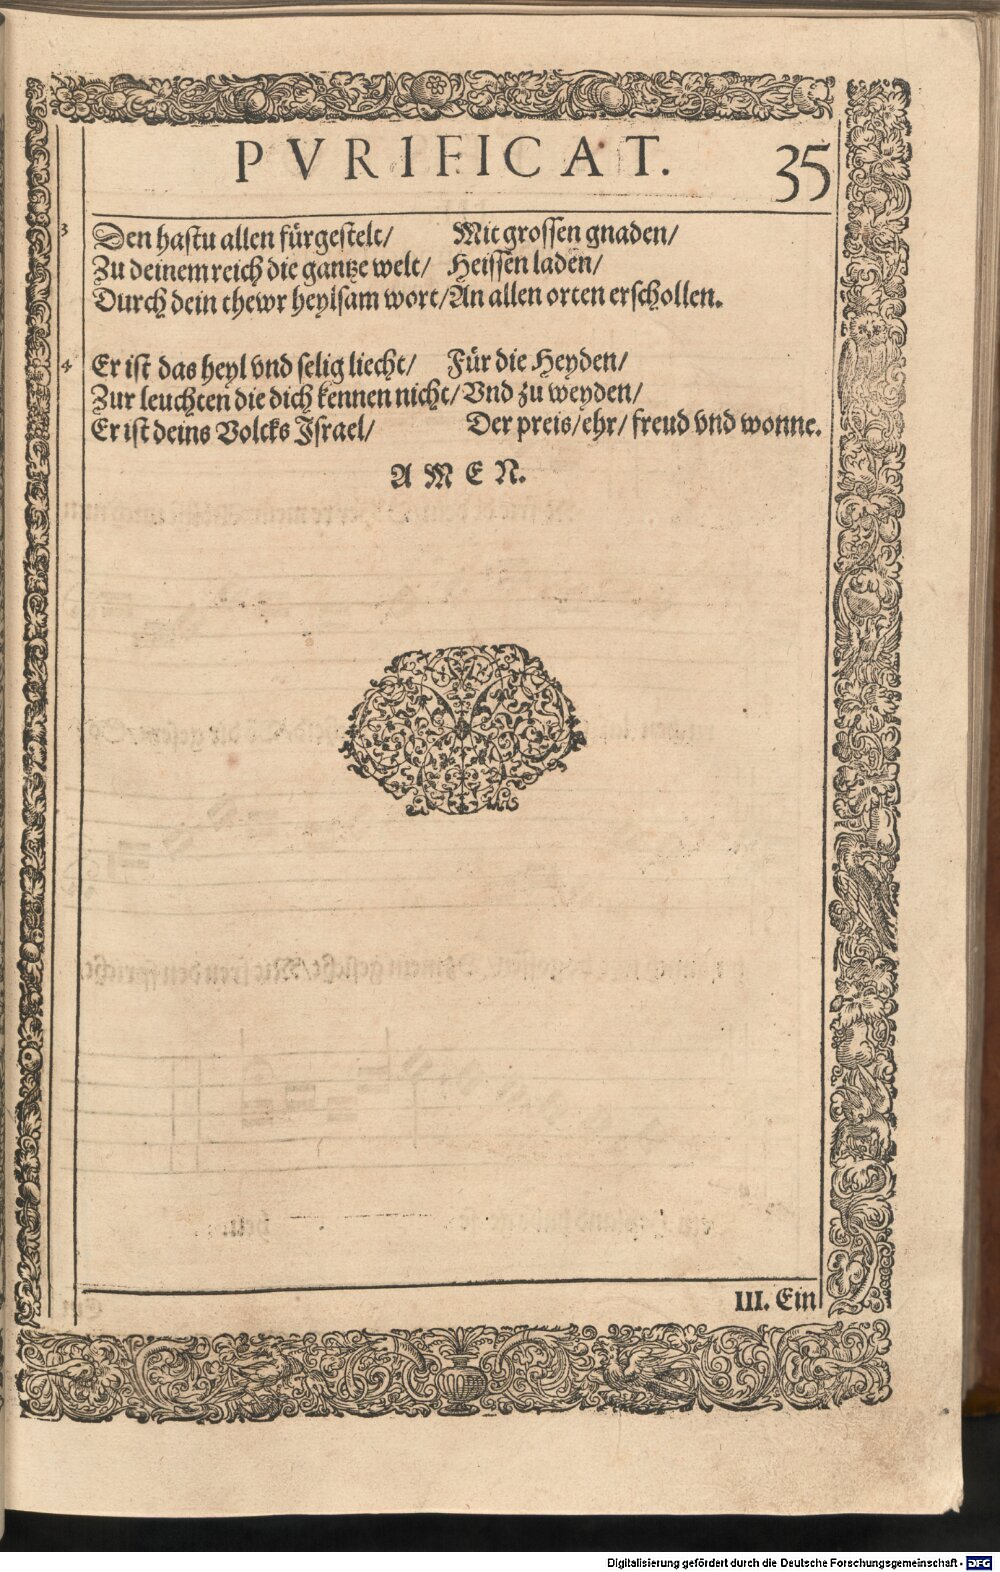 PVRIFICAT. 35
3 Den hastu allen fürgestelt/ Mit grossen gnaden/
Zu deinem reich die gantze welt/ Heissen laden/
Durch dein thewr heylsam wort/ An allen orten erschollen.
4 Er ist das heyl vnd selig liecht/ Für die Heyden/
Zur leuchten die dich kennen nicht/ Vnd zu weyden/
Er ist deins Volcks Israel/ Der preis/ ehr/ freud vnd wonne.
AMEN.
III. Ein
Digitalisierung gefördert durch die Deutsche Forschungsgemeinschaft - DFG